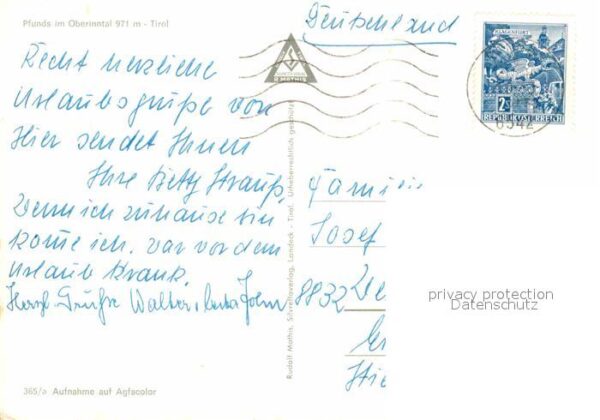 Pfunds im Oberinntal 971 m - Tirol
Recht herzliche
Urlaubsgrüße von
Hier sendet Ihnen
Ihre Betty Strauß,
Wenn ich zuhause bin
kome ich. War vor dem
Urlaub krank.
Herzl. Grüße Walter,
365/a Aufnahme auf Agfacolor
R. MATHIS
Rudolf Mathis, Silvrettaverlag, Landeck - Tirol. Urheberrechtlich geschützt
Deutschland
KLAGENFURT
2S
REPUBLIK ÖSTERREICH
6542
Famili
Josef
8832 We
privacy protection
Datenschutz